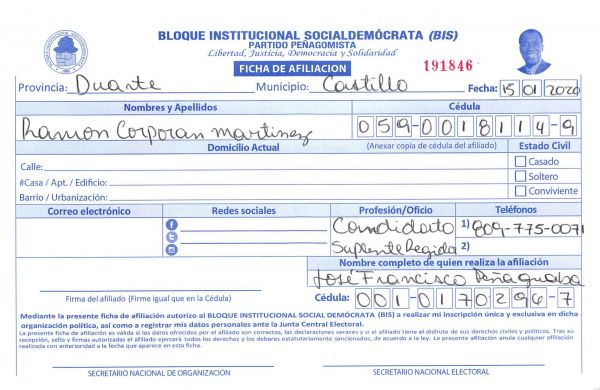 BLOQUE INSTITUCIONAL SOCIALDEMÓCRATA (BIS)
PARTIDO PEÑAGOMISTA
Libertad, Justicia, Democracia y Solidaridad
FICHA DE AFILIACION
191846
Provincia: Duarte Municipio: Castillo Fecha: 15 01 2020
Nombres y Apellidos Cédula
Ramon Corporan martinez 059-0018114-9
Domicilio Actual (Anexar copia de cédula del afiliado) Estado Civil
Calle: Casado
#Casa / Apt. / Edificio: Soltero
Barrio / Urbanización: Conviviente
Correo electrónico Redes sociales Profesión/Oficio Teléfonos
Candidato 1) 809-775-0071
Suplente Regido 2)
Nombre completo de quien realiza la afiliación
José Francisco Peña guaba
Firma del afiliado (Firme igual que en la Cédula) Cédula: 001-0170296-7
Mediante la presente ficha de afiliación autorizo al BLOQUE INSTITUCIONAL SOCIAL DEMÓCRATA (BIS) a realizar mi inscripción única y exclusiva en dicha
organización política, así como a registrar mis datos personales ante la Junta Central Electoral.
La presente ficha de afiliación es válida si los datos ofrecidos por el afiliado son correctos, las declaraciones veraces y si el afiliado tiene el disfrute de sus derechos civiles y políticos. Tras su
recepción, sello y firmas autorizadas el afiliado ejercerá todos los derechos y los deberes estatutariamente sancionados, de acuerdo a la ley. La presente afiliación anula cualquier afiliación
realizada con anterioridad a la fecha que aparece en esta ficha.
SECRETARIO NACIONAL DE ORGANIZACIÓN SECRETARIO NACIONAL ELECTORAL